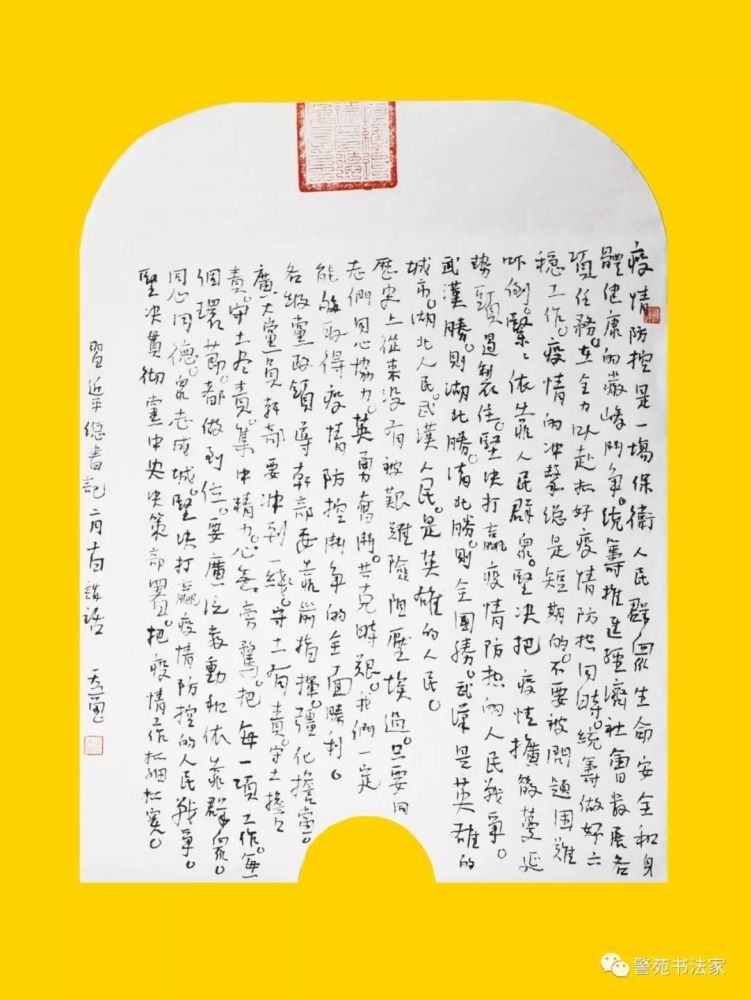 疫情防控是一場保衛人民群眾生命安全和身
體健康的嚴峻鬥争。統籌推進經濟社會發展各
項任務。在全力以赴抓好疫情防控同時。統籌做好六
穩工作。疫情的冲擊總是短期的。不要被問題困難
吓倒。緊緊依靠人民群眾。堅决把疫情擴散蔓延
势頭遏製住。堅决打贏疫情防控的人民戰争。
武漢勝。則湖北勝。湖北勝。則全國勝。武漢是英雄的
城市。湖北人民。武漢人民。是英雄的人民。
歷史上從来没有被艱難險阻壓垮過。只要同
志們同心協力。英勇奮鬥。共克時艱。我們一定
能够取得疫情防控鬥争的全面勝利。
各級黨政領導幹部要靠前指揮。彊化擔當。
廣大黨員幹部要冲到一綫。守土有責。守土擔
責。守土盡責。集中精力。心無旁騖。把每一項工作。每
個環節。都做到位。要廣泛發動和依靠群眾。
同心同德。眾志成城。堅决打贏疫情防控的人民戰争。
堅决貫彻黨中央决策部署。把疫情工作抓細抓实。
習近平總書記二月十日講话
警苑书法家